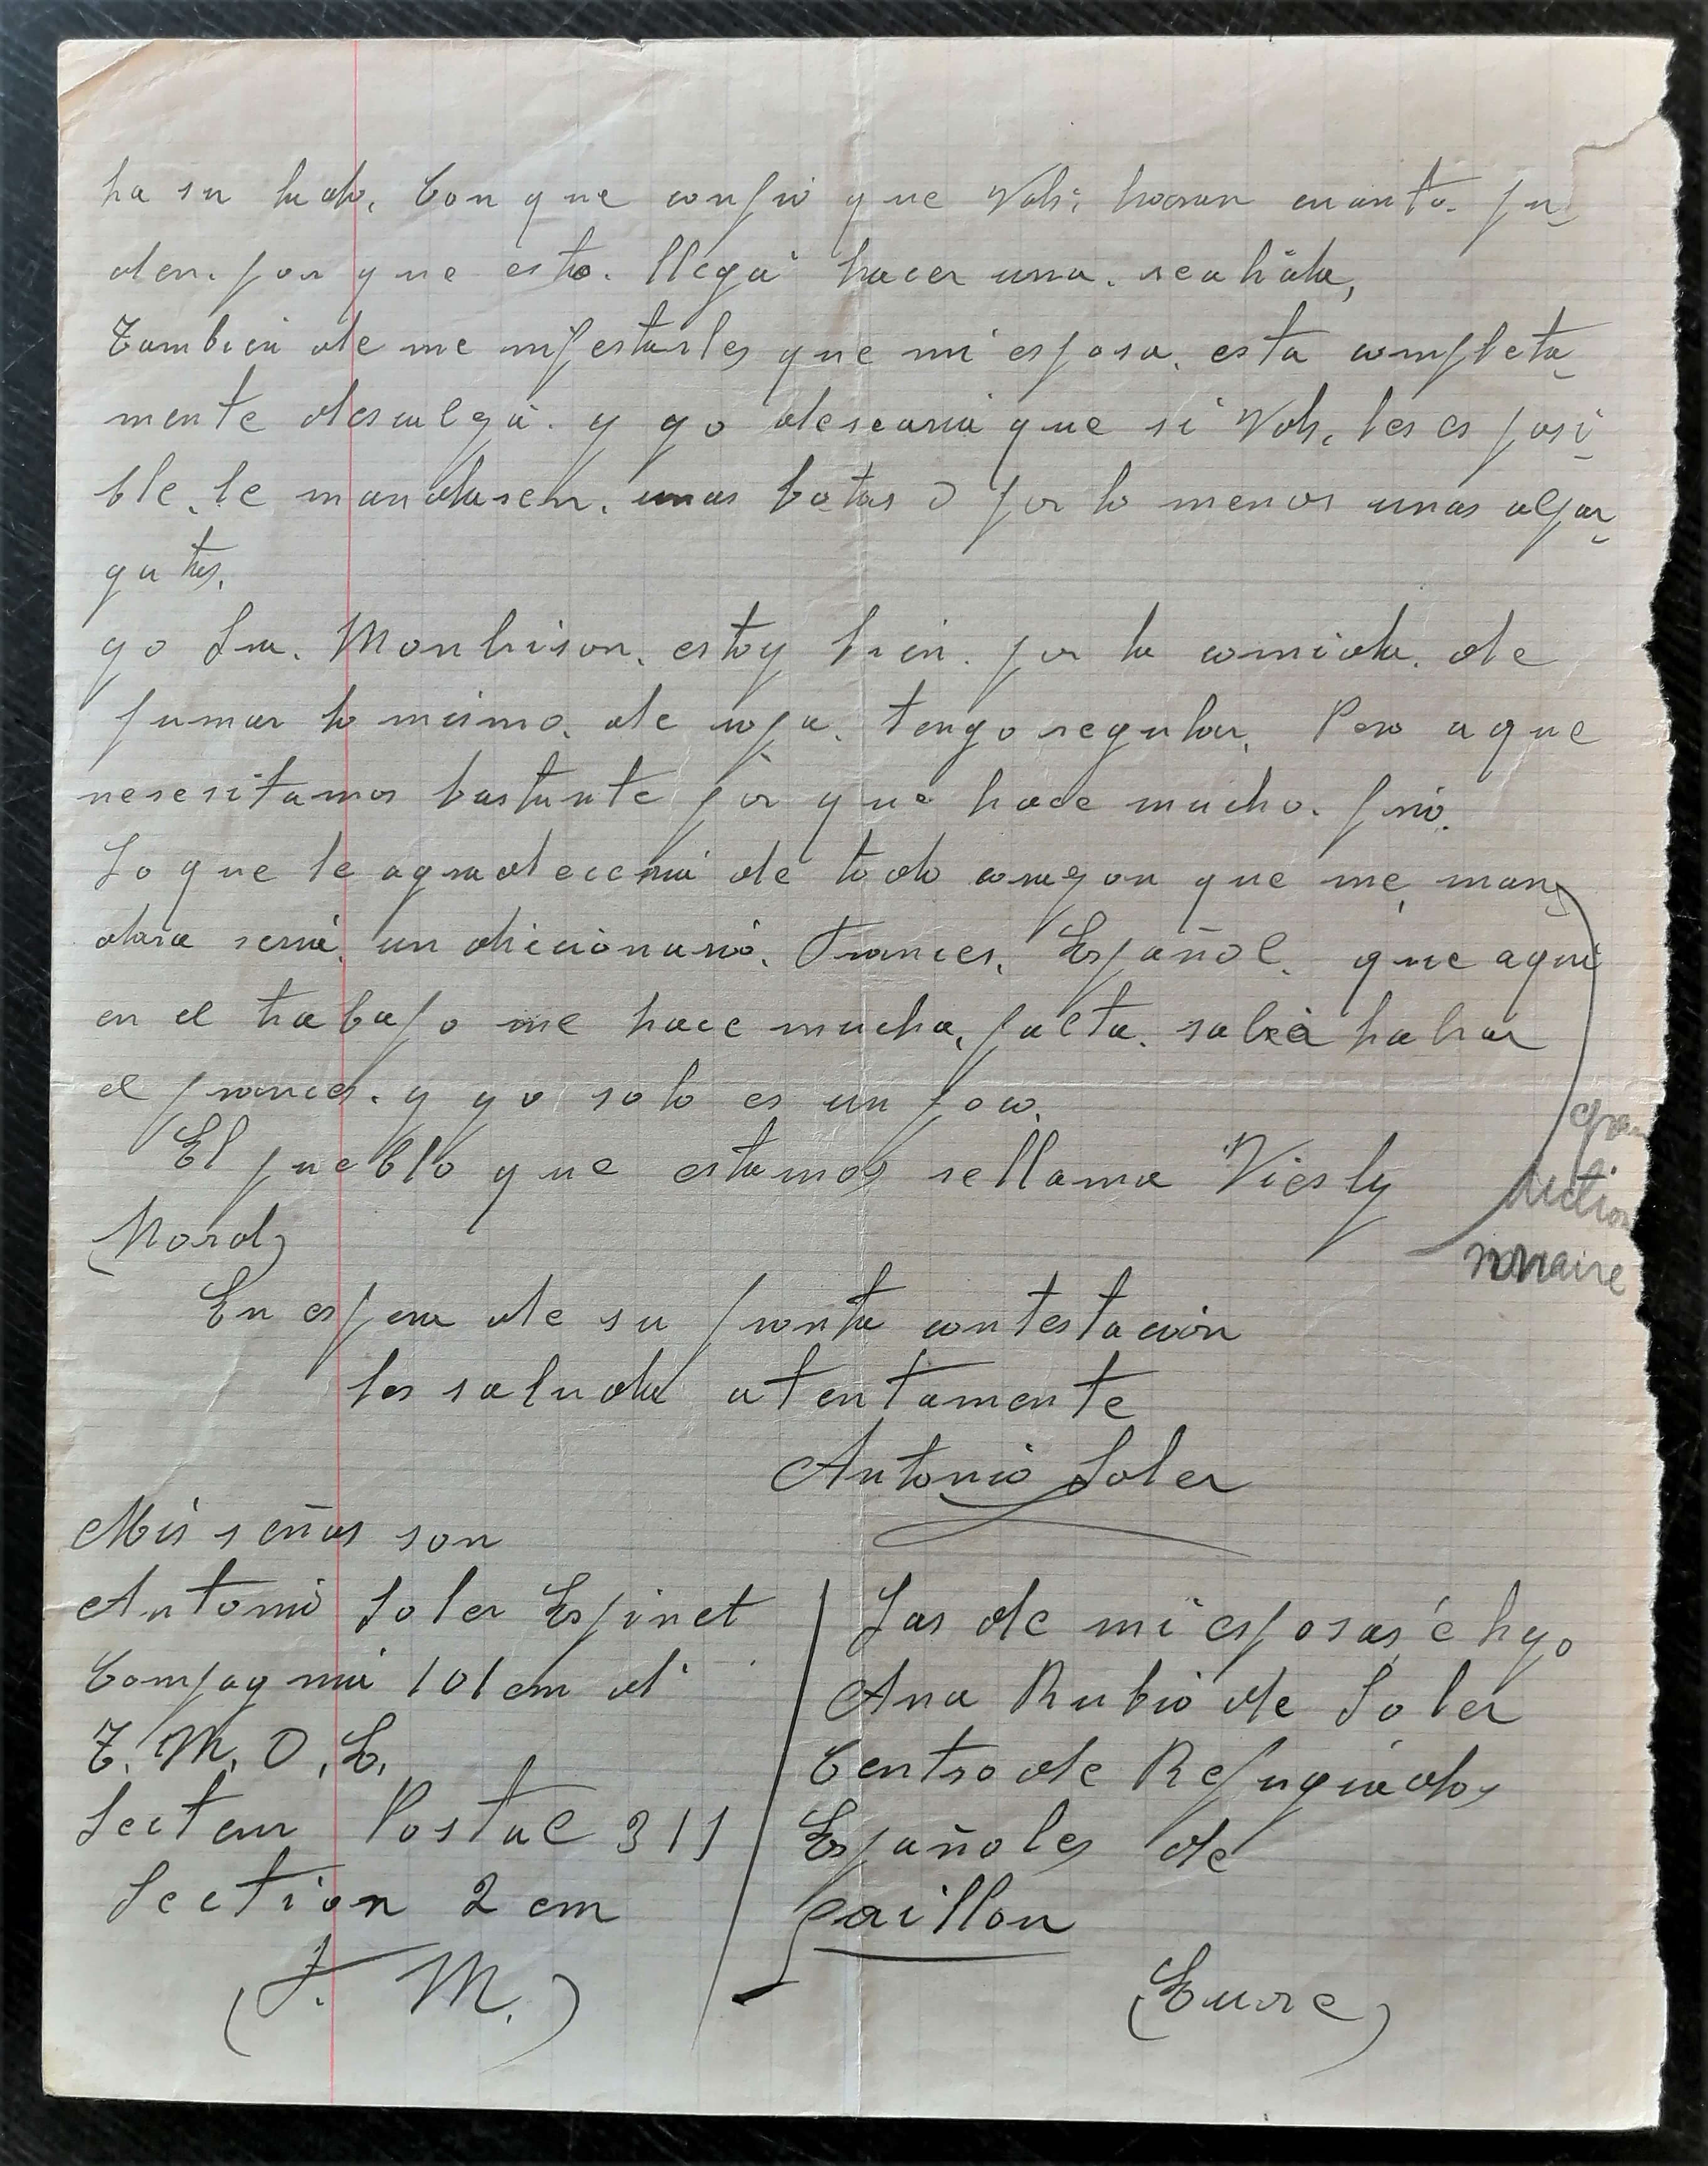 ha su lado. Con que confio que Vds. haran cuanto pu-
den. por que esto. llegá hacer una. realidá,
Tambien de me nifestarles que mi esposa. esta completa-
mente desculsá. y yo desearia que si Vds. les es posi-
ble. le mandasen. unas botas o por lo menos unas alpar-
gatas.
yo Sra. Monbrison. estoy bien. por la comida. de
fumar lo mismo. de ropa. tengo regular. Pero aque
nesesitamos bastante por que hace mucho. frio.
Lo que le agradeceria de todo corazon que me man-
dara seria un dicionario. Frances. Español. que aqui
en el trabajo me hace mucha, falta. saber hablar
el frances. y yo solo es un poco.
El pueblo que estamos se llama Viesly
(Nord)
gran
diction
nonaire
En espera de su pronta contestacion
les saluda atentamente
Antonio Soler
Mis señas son
Antonio Soler Espinet
Compagnia 101 em d'
T. M. O, E,
Secteur Postal 311
Section 2 em
(F. M.)
Las de mi esposas é hijo
Ana Rubio de Soler
Centro de Refugiados
Españoles de
Gaillon
(Eure)